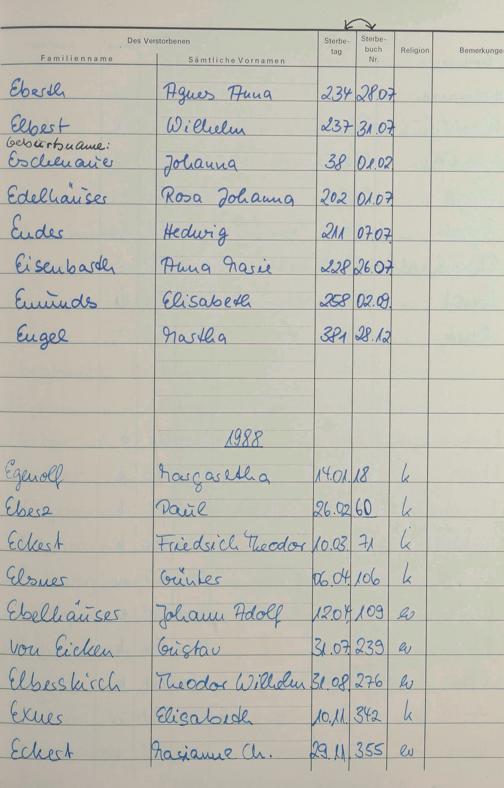 Des Verstorbenen
Familienname Sämtliche Vornamen Sterbe-tag Sterbe-buch Nr. Religion Bemerkunge
Eberth Agnes Anna 234 28.07
Elbert Wilhelm 237 31.07
Geburtsname:
Eschenauer Johanna 38 01.02
Edelhäuser Rosa Johanna 202 01.07
Endes Hedwig 211 07.07
Eisenbarth Anna Marie 228 26.07
Emünds Elisabeth 258 02.09.
Engel Martha 381 28.12
1988
Egenolf Margaretha 14.01. 18 k
Eberz Paul 26.02 60 k
Eckert Friedrich Theodor 10.03. 71 k
Elsner Günter 06.04. 106 k
Ebelhäuser Johann Adolf 12.04 109 ev
von Eicken Gustav 31.07. 239 ev
Elbesskirch Theodor Wilhelm 31.08. 276 ev
Exner Elisabeth 10.11. 342 k
Eckert Marianne Ch. 29.11 355 ev